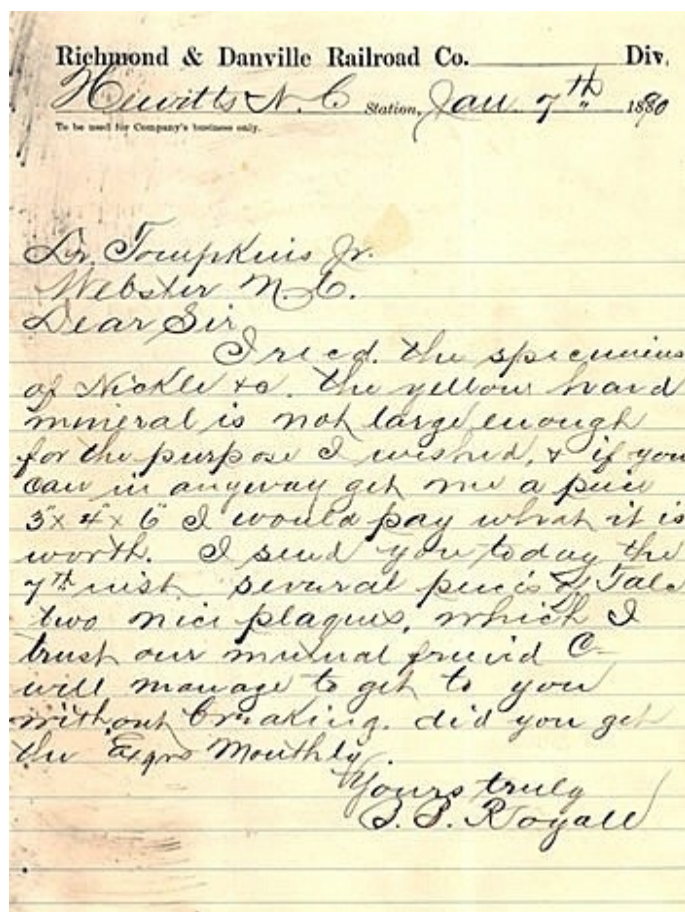 Richmond & Danville Railroad Co. Div.
Hewitts N. C Station, Jan 7th 1890
To be used for Company's business only.
Dr. Tompkins Jr.
Webster N. C.
Dear Sir
I recd. the specimins
of Nickle &c. the yellow hard
mineral is not large enough
for the purpose I wished, & if you
can in anyway get me a peice
3"x 4"x 6" I would pay what it is
worth. I send you today the
7th inst several peices of Talc
two nice plaques, which I
trust our mutual freind C-
will manage to get to you
without breaking. did you get
the Monthly.
Yours truly
Royall